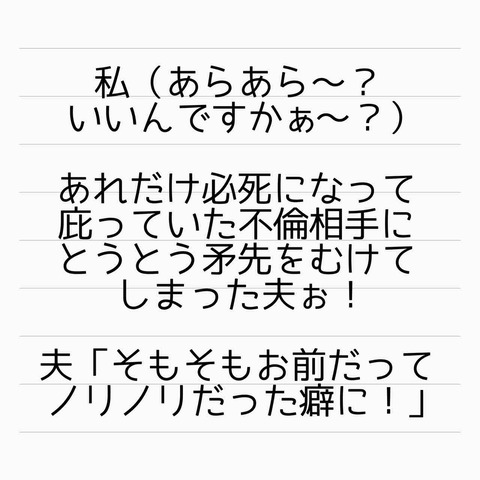 私（あらあら～？
いいんですかぁ～？）
あれだけ必死になって
庇っていた不倫相手に
とうとう矛先をむけて
しまった夫ぉ！
夫「そもそもお前だって
ノリノリだった癖に！」